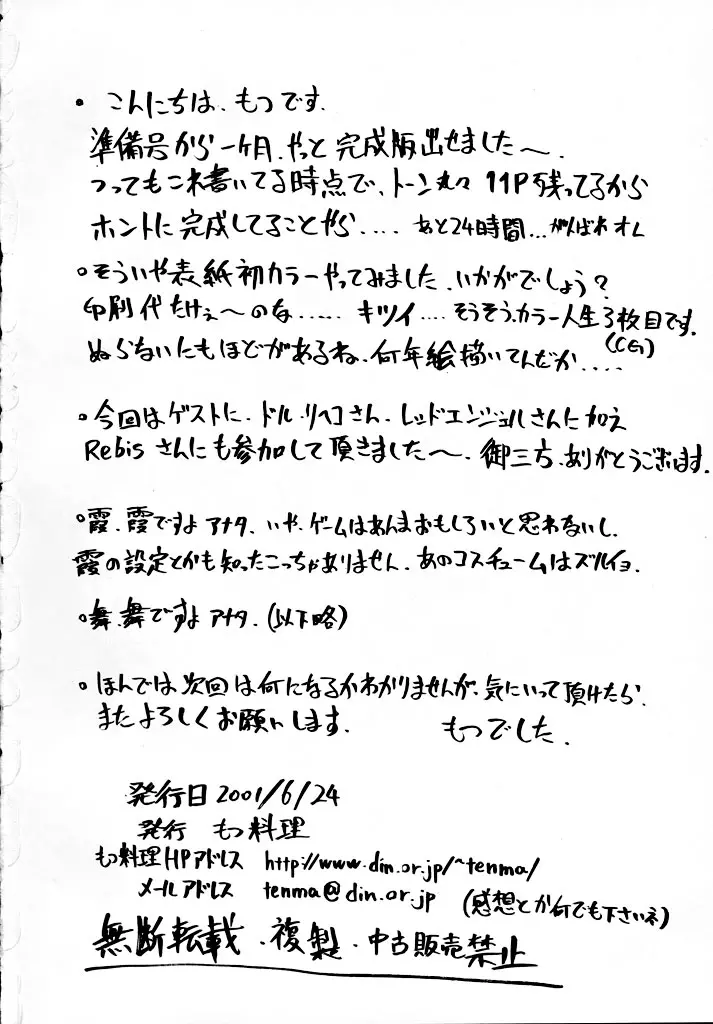 ・ こんにちは、もつです.
準備号から一ヶ月、やっと完成版出せました〜.
つってもこれ書いてる時点で、トーン丸々11P残ってるから
ホントに完成してることやら.... あと24時間...がんばれオレ
・そういや表紙初カラーやってみました、いかがでしょう?
印刷代たけぇ〜のな...... キツイ.... そうそう、カラー人生3枚目です.
(CG)
ぬらないにもほどがあるね、何年絵描いてんだか....
・今回はゲストに、ドル・リヘコさん、レッドエンジェルさんに加え
Rebisさんにも参加して頂きました〜、御三方、ありがとうございます.
・霞、霞ですよアナタ、いや、ゲームはあんまおもしろいと思わないし、
霞の設定とかも知ったこっちゃありません、あのコスチュームはズルイョ.
・舞、舞ですよアナタ.(以下略)
・ほんでは次回は何になるかわかりませんが、気にいって頂けたら、
またよろしくお願いします. もつでした.
発行日 2001/6/24
発行 もつ料理
もつ料理HPアドレス http://www.din.or.jp/~tenma/
メールアドレス tenma@din.or.jp (感想とか何でも下さいネ)
無断転載・複製・中古販売禁止